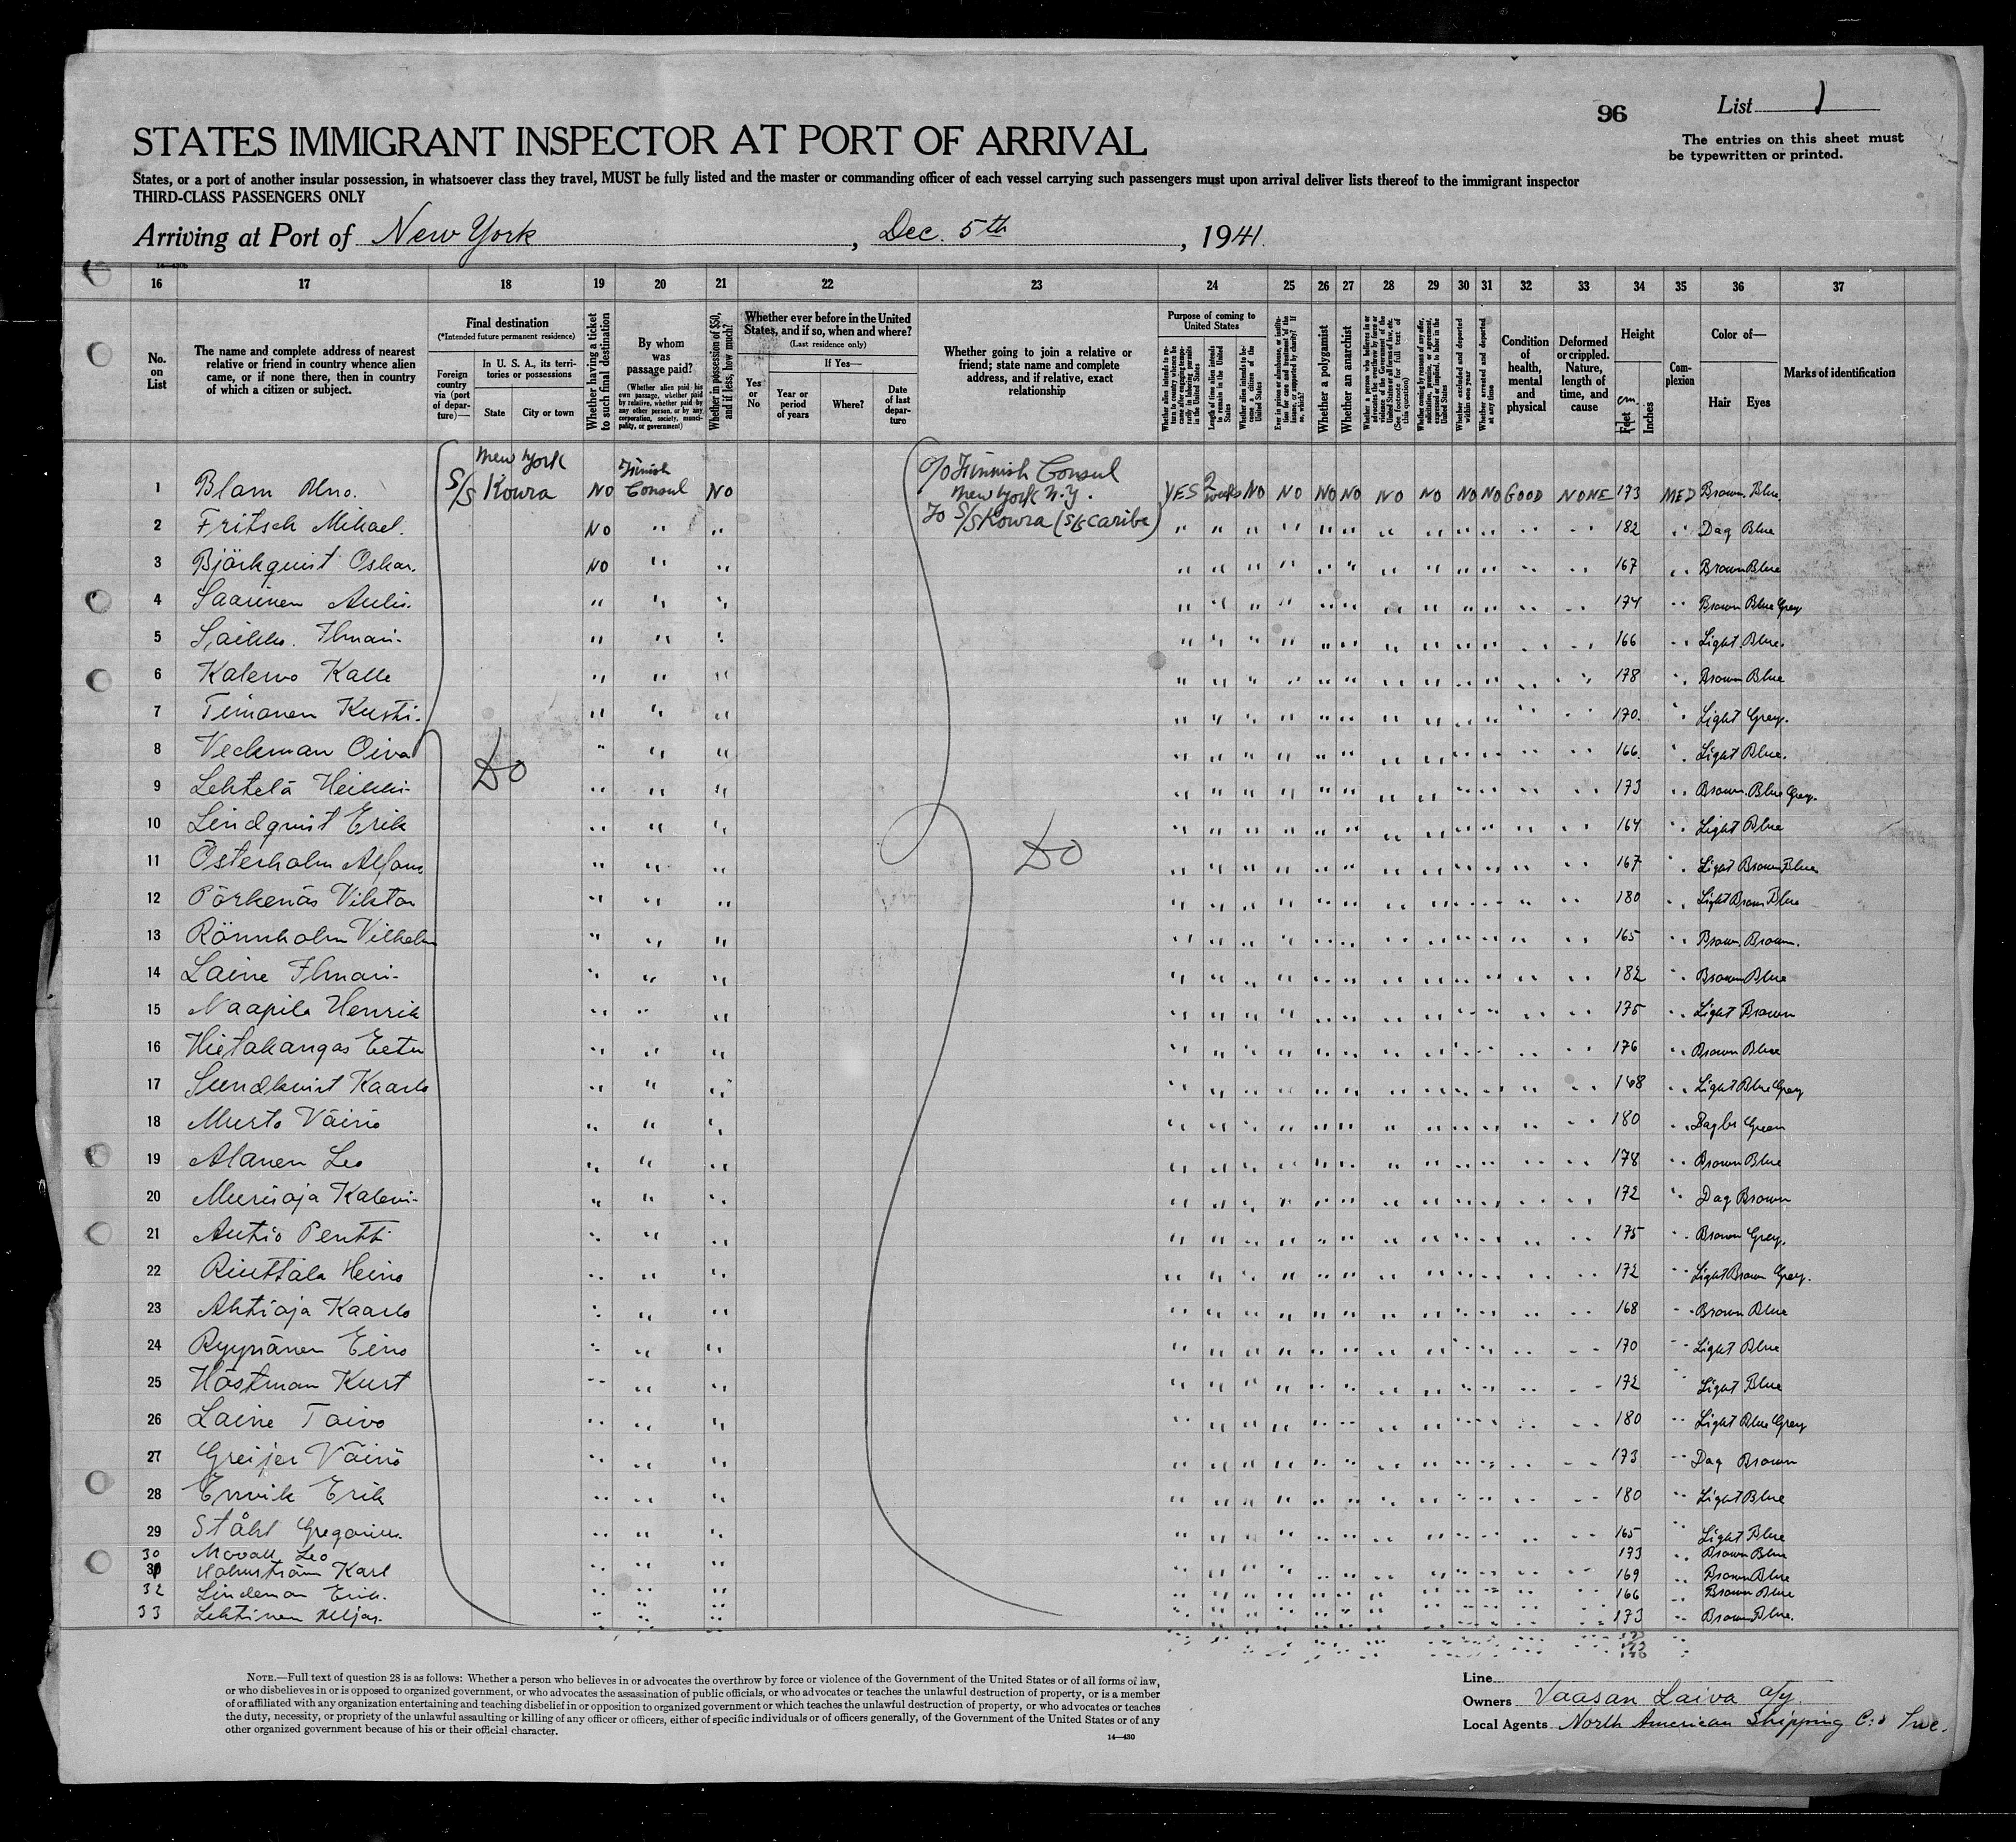 96
List 1
The entries on this sheet must
be typewritten or printed.
STATES IMMIGRANT INSPECTOR AT PORT OF ARRIVAL
States, or a port of another insular possession, in whatsoever class they travel, MUST be fully listed and the master or commanding officer of each vessel carrying such passengers must upon arrival deliver lists thereof to the immigrant inspector
THIRD-CLASS PASSENGERS ONLY
Arriving at Port of New York, Dec. 5th, 1941.
16 17 18 19 20 21 22 23 24 25 26 27 28 29 30 31 32 33 34 35 36 37
No. on List
The name and complete address of nearest relative or friend in country whence alien came, or if none there, then in country of which a citizen or subject.
Final destination
(*Intended future permanent residence)
Foreign country via (port of departure)—
In U. S. A., its territories or possessions
State City or town
Whether having a ticket to such final destination
By whom was passage paid?
(Whether alien paid his own passage, whether paid by relative, whether paid by any other person, or by any corporation, society, municipality, or government)
Whether in possession of $50, and if less, how much?
Whether ever before in the United States, and if so, when and where?
(Last residence only)
Yes or No
If Yes—
Year or period of years
Where?
Date of last departure
Whether going to join a relative or friend; state name and complete address, and if relative, exact relationship
Purpose of coming to United States
Length of time alien intends to remain in the United States
Whether alien intends to become a citizen of the United States
Whether a polygamist
Whether an anarchist
Whether excluded and deported within one year
Whether arrested and deported at any time
Condition of health, mental and physical
Deformed or crippled. Nature, length of time, and cause
Height
cm.
Feet Inches
Complexion
Color of—
Hair Eyes
Marks of identification
New York Finnish c/o Finnish Consul
1 Blom S/S Kowra NO Consul NO New York N.Y. YES 2 weeks NO NO NO NO NO NO NO NO GOOD NONE 173 MED Brown Blue
To S/S Kowra (S/S Caribe)
2 Fritsch Mikael. NO " " " " " " " " " " " " " " 182 " Dag Blue
3 Björkquist Oskar. NO " " " " " " " " " " " " " " 167 " Brown Blue
4 Saarinen Aulis. " " " " " " " " " " " " " " " 174 " Brown Blue Grey
5 Ilmari " " " " " " " " " " " " " " " 166 " Light Blue.
6 Kalervo Kalle " " " " " " " " " " " " " " " 178 " Brown Blue
7 Timonen Kusti. " " " " " " " " " " " " " " " 170. " Light Grey.
8 Veckman Oiva Do " " " " " " " " " " " " " " " 166. " Light Blue.
9 Lehtelä Heikki " " " " " " " " " " " " " " " 173 " Brown Blue Grey.
10 Lindquist Erik " " " " " " " " " " " " " " " 164 " Light Blue
11 Österholm Alfons " " " Do " " " " " " " " " " " " 167 " Light Brown Blue
12 Pörkenäs Viktor " " " " " " " " " " " " " " " 180 " Light Brown Blue
13 Rönnholm Vilhelm " " " " " " " " " " " " " " " 165 " Brown. Brown.
14 Laine Ilmari " " " " " " " " " " " " " " " 182 " Brown Blue
15 Naapila Henrik " " " " " " " " " " " " " " " 175 " Light Brown
16 Hietakangas Eetu " " " " " " " " " " " " " " " 176 " Brown Blue
17 Sundkvist Kaarlo " " " " " " " " " " " " " " " 168 " Light Blue Grey
18 Murto Väinö " " " " " " " " " " " " " " " 180 " Green
19 Alanen Leo " " " " " " " " " " " " " " " 178 " Brown Blue
20 Murioja Kalevi " " " " " " " " " " " " " " " 172 " Dag Brown
21 Autio Pentti " " " " " " " " " " " " " " " 175 " Brown Grey.
22 Riuttala Heino " " " " " " " " " " " " " " " 172 " Light Brown Grey.
23 Ahtioja Kaarlo " " " " " " " " " " " " " " " 168 " Brown Blue
24 Ryynänen Eino " " " " " " " " " " " " " " " 170 " Light Blue
25 Hästman Kurt " " " " " " " " " " " " " " " 172 " Light Blue
26 Laine Toivo " " " " " " " " " " " " " " " 180 " Light Blue Grey
27 Greijer Väinö " " " " " " " " " " " " " " " 173 " Dag Brown
28 Envik Erik " " " " " " " " " " " " " " " 180 " Light Blue
29 Ståhl Gregorius. " " " " " " " " " " " " " " " 165 " Light Blue
30 Leo 173 " Brown Blue
31 Holmström Karl " " " " " " " " " " " " " " " 169 " Brown Blue
32 Lindeman Erik. " " " " " " " " " " " " " " " 166 " Brown Blue
33 Lehtinen " " " " " " " " " " " " " " " 173 " Brown Blue.
NOTE.—Full text of question 28 is as follows: Whether a person who believes in or advocates the overthrow by force or violence of the Government of the United States or of all forms of law,
or who disbelieves in or is opposed to organized government, or who advocates the assassination of public officials, or who advocates or teaches the unlawful destruction of property, or is a member
of or affiliated with any organization entertaining and teaching disbelief in or opposition to organized government or which teaches the unlawful destruction of property, or who advocates or teaches
the duty, necessity, or propriety of the unlawful assaulting or killing of any officer or officers, either of specific individuals or of officers generally, of the Government of the United States or of any
other organized government because of his or their official character.
14—430
Line
Owners Vaasan Laiva o/y.
Local Agents North American Shipping C:o Inc.